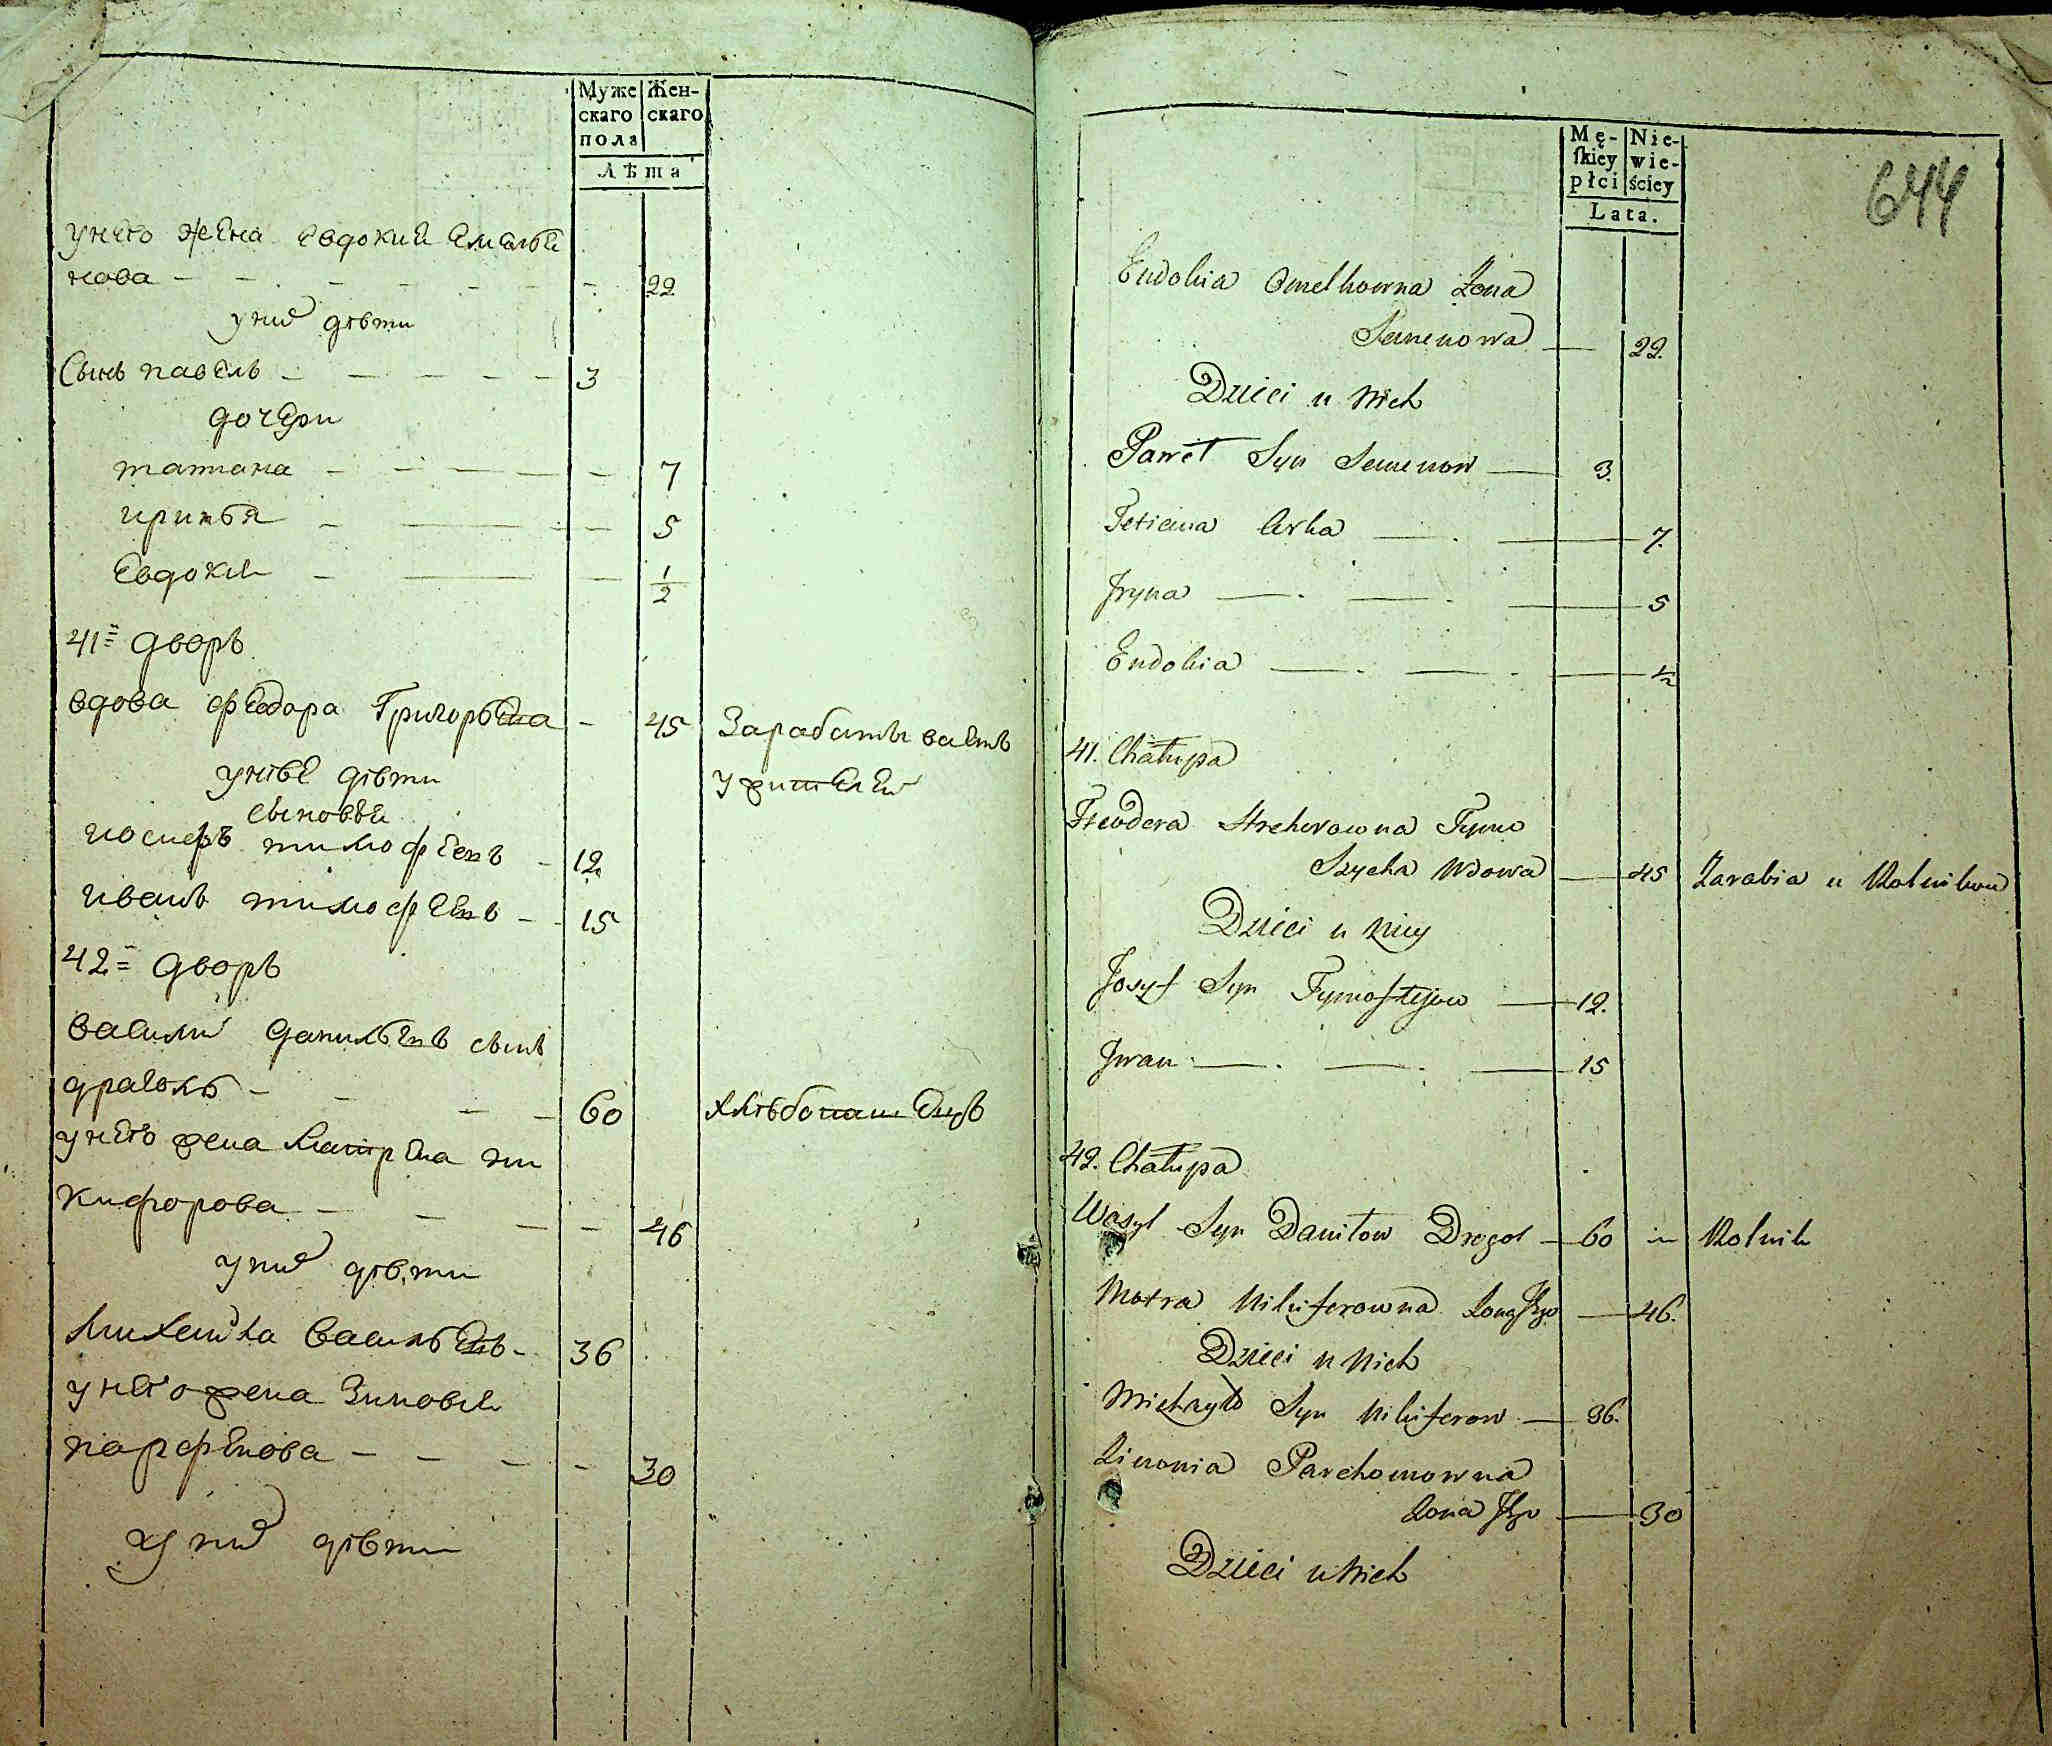 Муже
скаго
пола
Жен-
скаго
Лѣта
унего жена евдокия емелья
нова - - - - - - - 22
уних дѣти
Сынъ павелъ - - - - - 3
дочери
татиана - - - - - 7
ирина - - - 5
Евдокия - - - 1/2
41й дворъ
вдова феодора Григорьева - 45 Зарабатываетъ
унѣе дѣти
у жителей
сыновья
иосифъ тимофеевъ - 12
иванъ тимофеевъ - - 15
42й дворъ
василий данильевъ сынъ
драголь - - - - 60 хлѣбопашецъ
унего жена матрена ни
кифорова - - - - - 46
уних дѣти
михайла васильевъ - 36
унего жена Зиновия
парфенова - - - - - 30
уних дѣти
644
Mę-
skiey
płci
Nie-
wie-
ściey
Lata.
Eudokia Omelkowna Zona
Semenowa — 22.
Dzieci u Nich
Paweł Syn Semenow — 3.
Tetiana Corka — . — 7.
Jryna — . — . — 5
Eudokia — . — . — 1/2
41. Chałupa
Feodora Hrehorowna Tymo
Szycha Wdowa — 45 Zarabia u Rolnikow
Dzieci u Niey
Josyf Syn Tymofiejow — 12.
Jwan — . — . — 15
42. Chałupa
Wasyl Syn Daniłow Dragol — 60 — Rolnik
Motra Nikiferowna Zona Jego — 46.
Dzieci u Nich
Michayło Syn Nikiferow — 36.
Zinowia Parchomowna
Zona Jego — 30
Dzieci u Nich